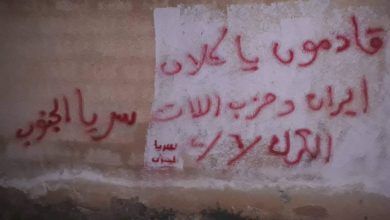 قادمون يا كلاب
ايران وحزب اللات
سريا الجنوب
سريا
الجنوب